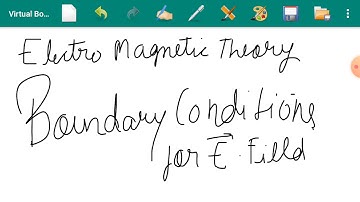 Virtual Bo...
Electro Magnetic Theory
Boundary Conditions
for E⃗. Filld